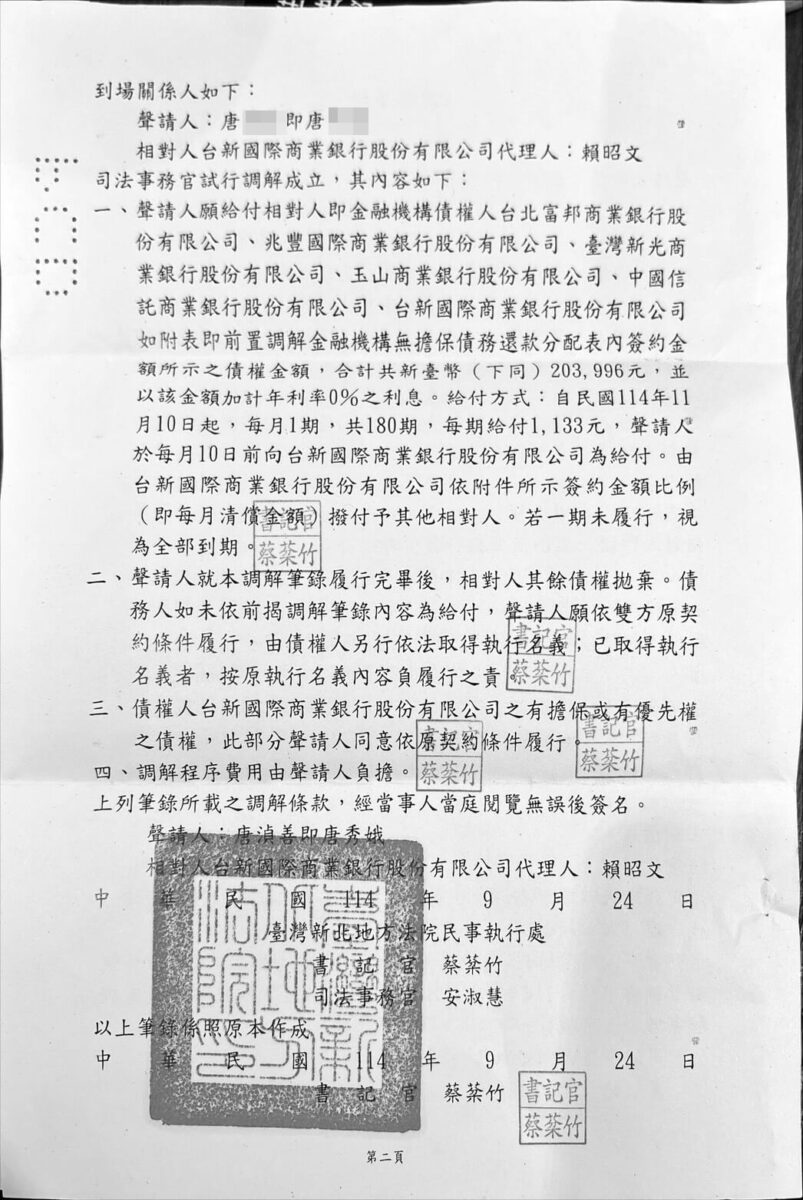 到場關係人如下：
聲請人：唐 即唐
相對人台新國際商業銀行股份有限公司代理人：賴昭文
司法事務官試行調解成立，其內容如下：
一、聲請人願給付相對人即金融機構債權人台北富邦商業銀行股
份有限公司、兆豐國際商業銀行股份有限公司、臺灣新光商
業銀行股份有限公司、玉山商業銀行股份有限公司、中國信
託商業銀行股份有限公司、台新國際商業銀行股份有限公司
如附表即前置調解金融機構無擔保債務還款分配表內簽約金
額所示之債權金額，合計共新臺幣（下同）203,996元，並
以該金額加計年利率0%之利息。給付方式：自民國114年11
月10日起，每月1期，共180期，每期給付1,133元，聲請人
於每月10日前向台新國際商業銀行股份有限公司為給付。由
台新國際商業銀行股份有限公司依附件所示簽約金額比例
（即每月清償金額）撥付予其他相對人。若一期未履行，視
為全部到期。
書記官
蔡蘂竹
二、聲請人就本調解筆錄履行完畢後，相對人其餘債權拋棄。債
務人如未依前揭調解筆錄內容為給付，聲請人願依雙方原契
約條件履行，由債權人另行依法取得執行名義；已取得執行
名義者，按原執行名義內容負履行之責。
書記官
蔡蘂竹
三、債權人台新國際商業銀行股份有限公司之有擔保或有優先權
之債權，此部分聲請人同意依原契約條件履行。
書記官
蔡蘂竹
四、調解程序費用由聲請人負擔。
書記官
蔡蘂竹
上列筆錄所載之調解條款，經當事人當庭閱覽無誤後簽名。
聲請人：唐湞善即唐秀娥
相對人台新國際商業銀行股份有限公司代理人：賴昭文
中華民國114年9月24日
臺灣新北地方法院民事執行處
書記官 蔡蘂竹
司法事務官 安淑慧
以上筆錄係照原本作成
中華民國114年9月24日
書記官 蔡蘂竹
書記官
蔡蘂竹
臺灣新北地方法院印
第二頁